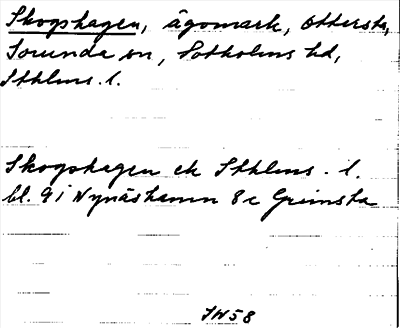 Skogshagen, ägomark, Ottersta,
Sorunda sn, Sotholms hd,
Sthlms. l.
Skogshagen ek Sthlms. l.
bl. 9i Nynäshamn 8c Grimsta
IW58